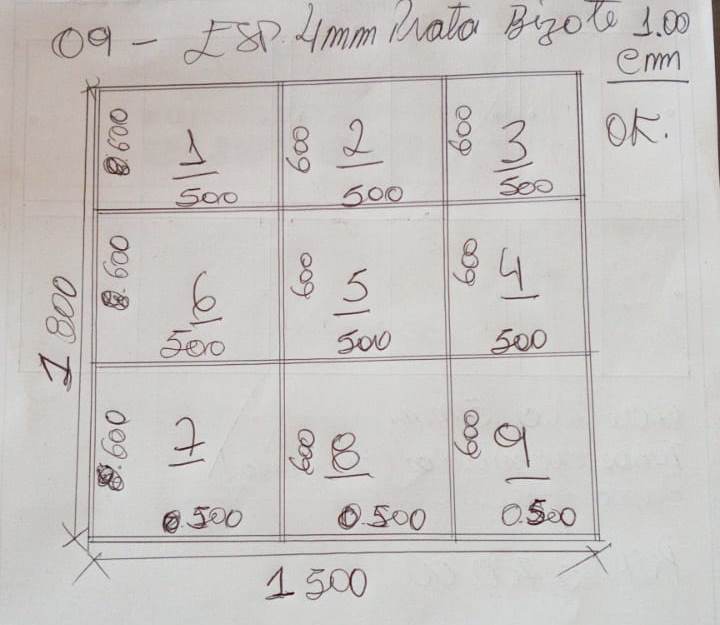 09 - ESP. 4mm Prata Bizote 1.00
cm
OK.
0.600 1 500
600 2 500
600 3 500
0.600 6 500
600 5 500
600 4 500
0.600 7 0.500
600 8 0.500
600 9 0.500
1 800
1 500